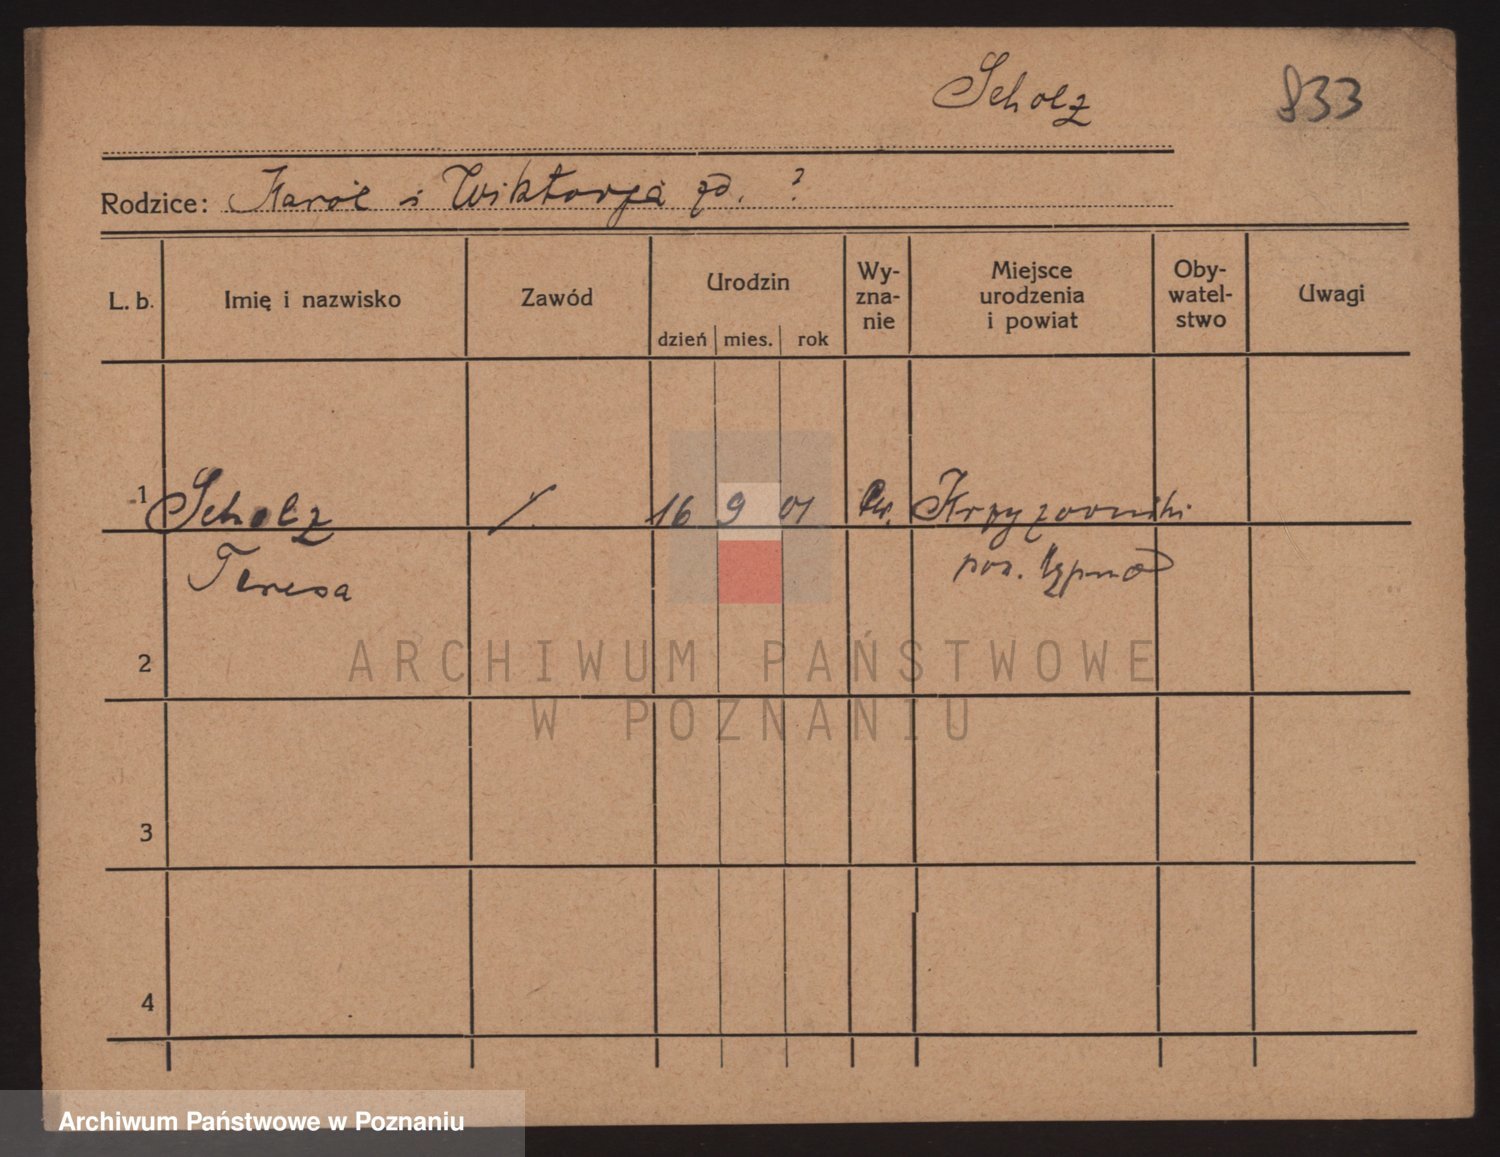 Scholz
833
Rodzice: Karol i Wiktorya zd. ?
L. b. Imię i nazwisko Zawód Urodzin dzień mies. rok Wy-zna-nie Miejsce urodzenia i powiat Oby-watel-stwo Uwagi
1 Scholz / 16 9 01 Krzyżowniki
Teresa
2
3
4
ARCHIWUM PAŃSTWOWE
W POZNANIU
Archiwum Państwowe w Poznaniu